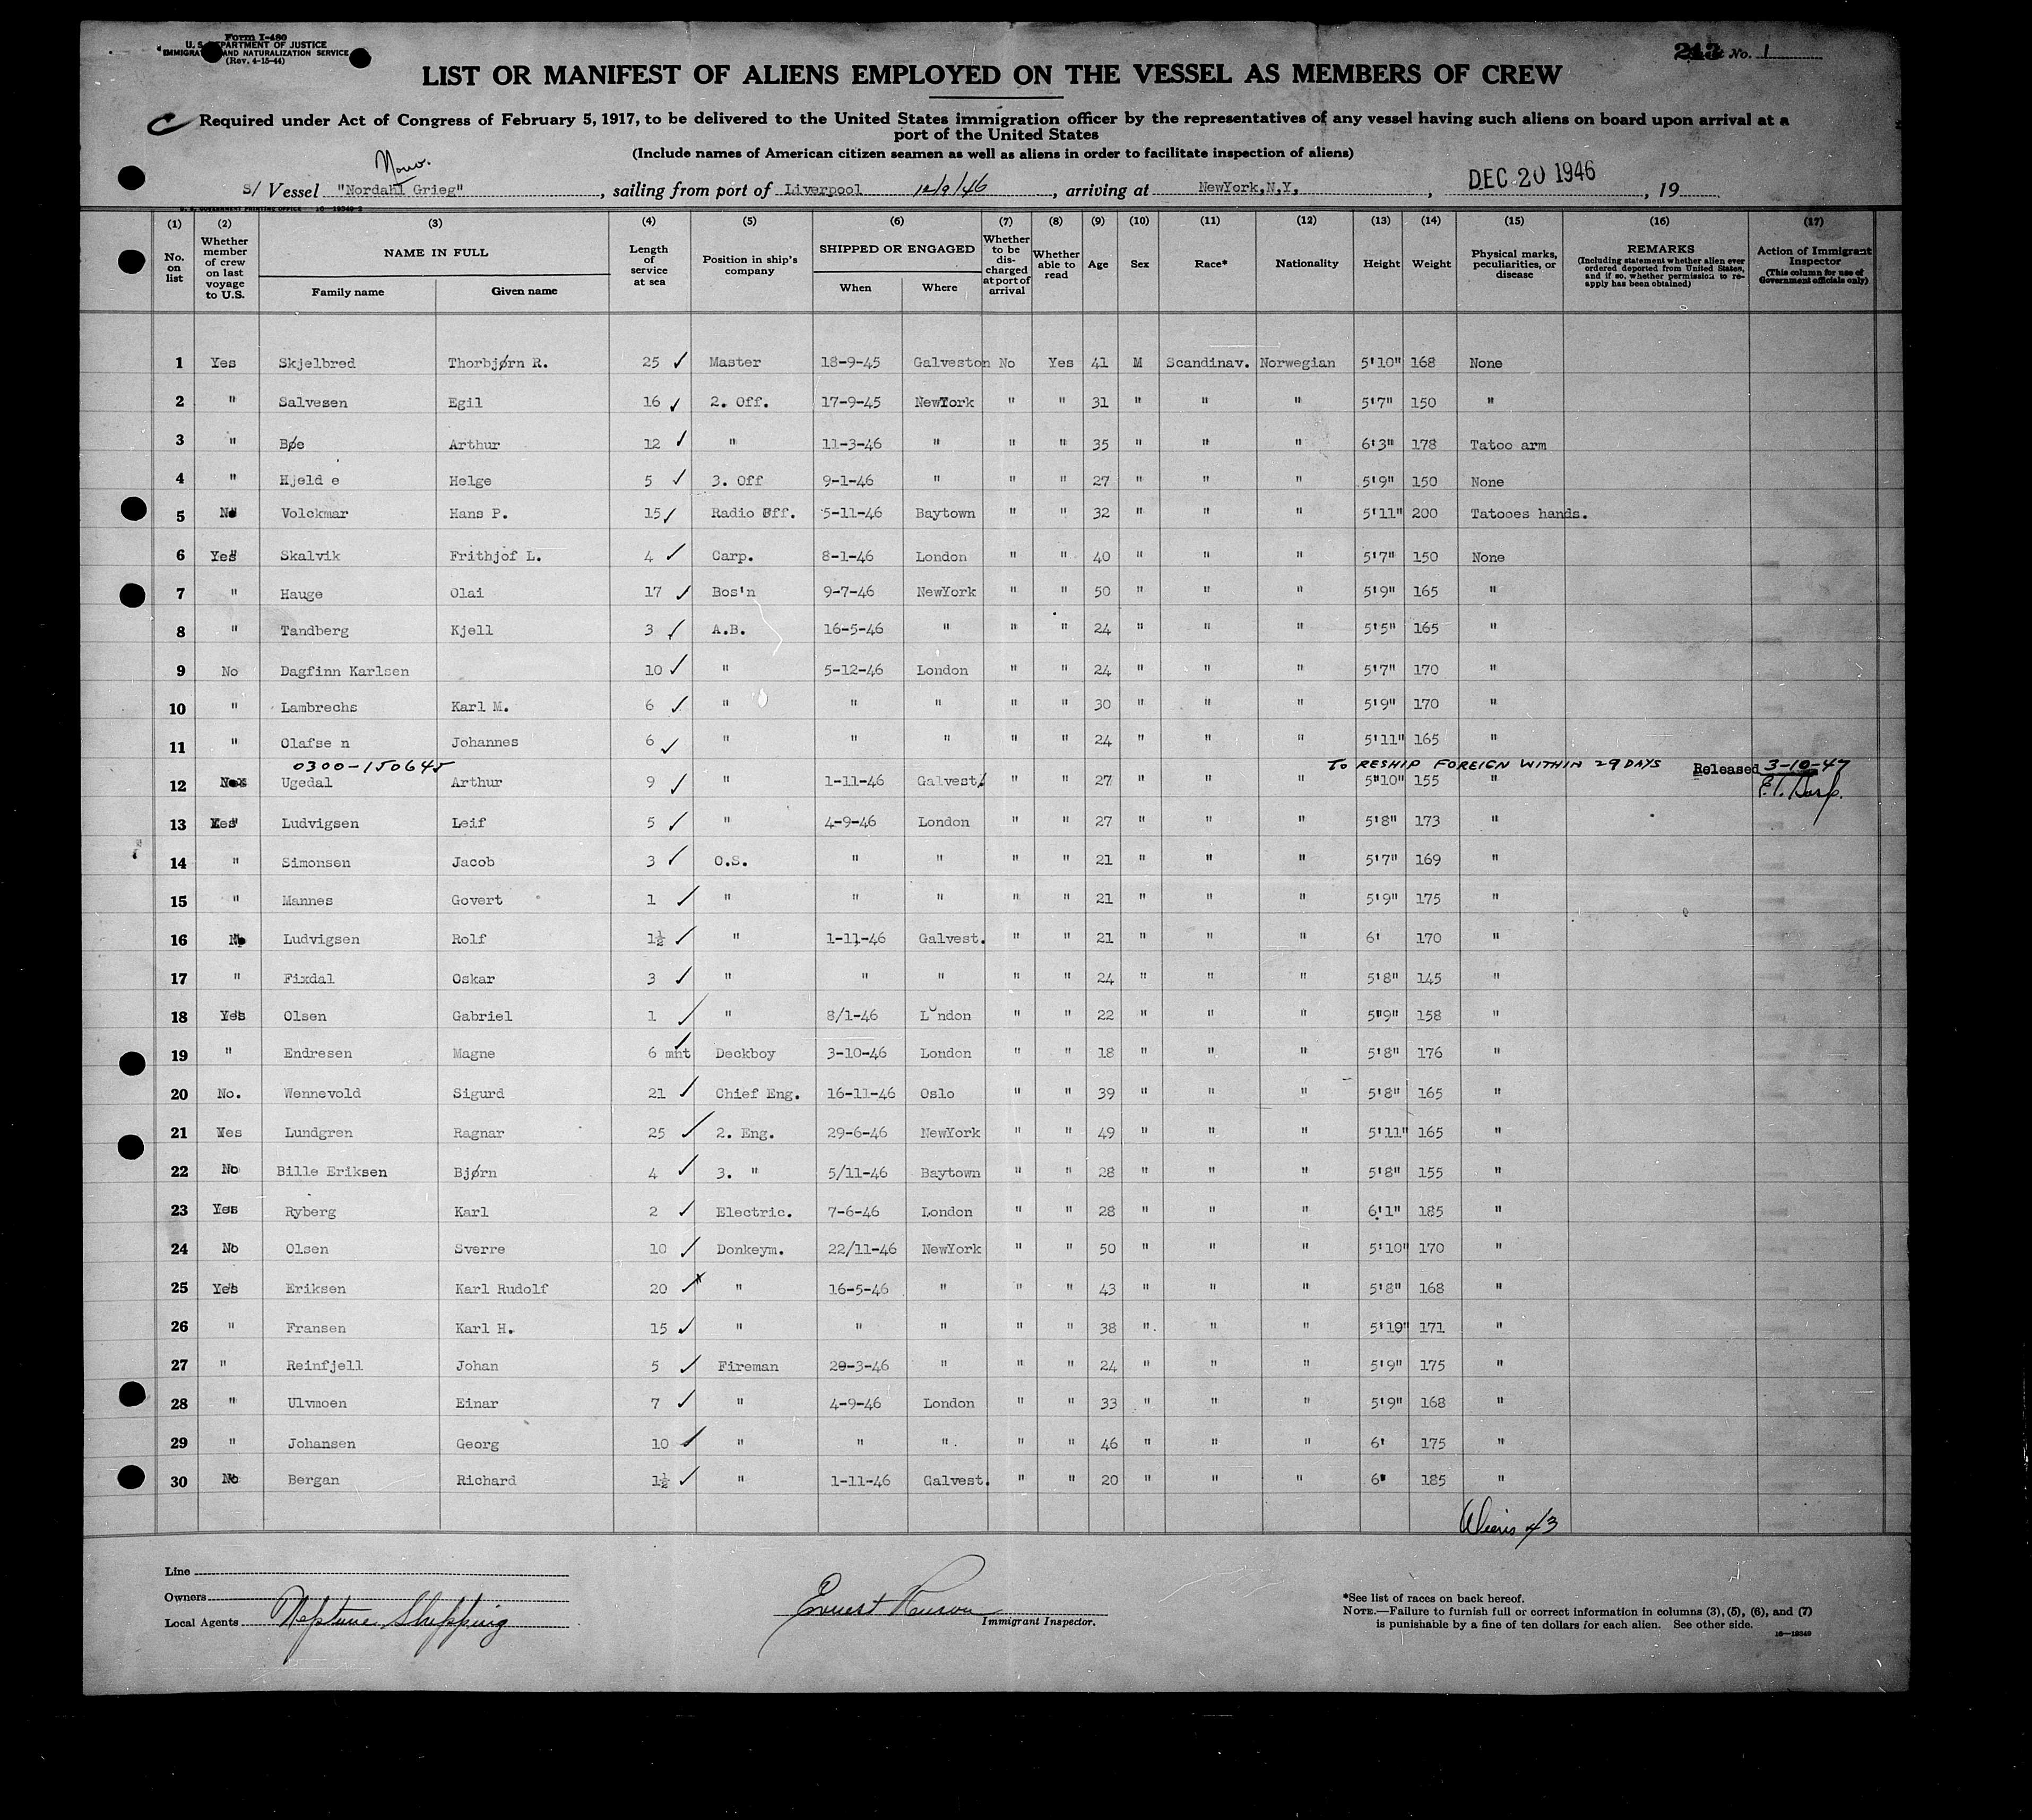 Form I-480
U. S. DEPARTMENT OF JUSTICE
IMMIGRATION AND NATURALIZATION SERVICE
(Rev. 4-15-44)
213 Sheet No. 1
LIST OR MANIFEST OF ALIENS EMPLOYED ON THE VESSEL AS MEMBERS OF CREW
Required under Act of Congress of February 5, 1917, to be delivered to the United States immigration officer by the representatives of any vessel having such aliens on board upon arrival at a
port of the United States
(Include names of American citizen seamen as well as aliens in order to facilitate inspection of aliens)
Norw.
S/ Vessel "Nordahl Grieg", sailing from port of Liverpool 12/9/46, arriving at NewYork,N,Y, , DEC 20 1946, 19
U. S. GOVERNMENT PRINTING OFFICE 16-19349-2
(1) (2) (3) (4) (5) (6) (7) (8) (9) (10) (11) (12) (13) (14) (15) (16) (17)
No. on list | Whether member of crew on last voyage to U.S. | NAME IN FULL Family name Given name | Length of service at sea | Position in ship's company | SHIPPED OR ENGAGED When Where | Whether to be discharged at port of arrival | Whether able to read | Age | Sex | Race* | Nationality | Height | Weight | Physical marks, peculiarities, or disease | REMARKS (Including statement whether alien ever ordered deported from United States, and if so, whether permission to reapply has been obtained) | Action of Immigrant Inspector (This column for use of Government officials only)
1 Yes Skjelbred Thorbjørn R. 25 ✓ Master 18-9-45 Galveston No Yes 41 M Scandinav. Norwegian 5'10" 168 None
2 " Salvesen Egil 16 ✓ 2. Off. 17-9-45 NewYork " " 31 " " " 5'7" 150 "
3 " Bøe Arthur 12 ✓ " 11-3-46 " " " 35 " " " 6'3" 178 Tatoo arm
4 " Hjeld e Helge 5 ✓ 3. Off 9-1-46 " " " 27 " " " 5'9" 150 None
5 No Volckmar Hans P. 15 ✓ Radio Off. 5-11-46 Baytown " " 32 " " " 5'11" 200 Tatooes hands.
6 Yes Skalvik Frithjof L. 4 ✓ Carp. 8-1-46 London " " 40 " " " 5'7" 150 None
7 " Hauge Olai 17 ✓ Bos'n 9-7-46 NewYork " " 50 " " " 5'9" 165 "
8 " Tandberg Kjell 3 ✓ A.B. 16-5-46 " " " 24 " " " 5'5" 165 "
9 No Dagfinn Karlsen 10 ✓ " 5-12-46 London " " 24 " " " 5'7" 170 "
10 " Lambrechs Karl M. 6 ✓ " " " " " 30 " " " 5'9" 170 "
11 " Olafse n Johannes 6 ✓ " " " " " 24 " " " 5'11" 165 "
0300-150645 TO RESHIP FOREIGN WITHIN 29 DAYS Released 3-10-47
12 No Ugedal Arthur 9 ✓ " 1-11-46 Galvest. " " 27 " " " 5'10" 155 "
13 Yes Ludvigsen Leif 5 ✓ " 4-9-46 London " " 27 " " " 5'8" 173 "
14 " Simonsen Jacob 3 ✓ O.S. " " " " 21 " " " 5'7" 169 "
15 " Mannes Govert 1 ✓ " " " " " 21 " " " 5'9" 175 "
16 No Ludvigsen Rolf 1½ ✓ " 1-11-46 Galvest. " " 21 " " " 6' 170 "
17 " Fixdal Oskar 3 ✓ " " " " " 24 " " " 5'8" 145 "
18 Yes Olsen Gabriel 1 ✓ " 8/1-46 London " " 22 " " " 5'9" 158 "
19 " Endresen Magne 6 mnt ✓ Deckboy 3-10-46 London " " 18 " " " 5'8" 176 "
20 No. Wennevold Sigurd 21 ✓ Chief Eng. 16-11-46 Oslo " " 39 " " " 5'8" 165 "
21 Yes Lundgren Ragnar 25 ✓ 2. Eng. 29-6-46 NewYork " " 49 " " " 5'11" 165 "
22 No Bille Eriksen Bjørn 4 ✓ 3. " 5/11-46 Baytown " " 28 " " " 5'8" 155 "
23 Yes Ryberg Karl 2 ✓ Electric. 7-6-46 London " " 28 " " " 6'1" 185 "
24 No Olsen Sverre 10 ✓ Donkeym. 22/11-46 NewYork " " 50 " " " 5'10" 170 "
25 Yes Eriksen Karl Rudolf 20 ✓ " 16-5-46 " " " 43 " " " 5'8" 168 "
26 " Fransen Karl H. 15 ✓ " " " " " 38 " " " 5'10" 171 "
27 " Reinfjell Johan 5 ✓ Fireman 20-3-46 " " " 24 " " " 5'9" 175 "
28 " Ulvmoen Einar 7 ✓ " 4-9-46 London " " 33 " " " 5'9" 168 "
29 " Johansen Georg 10 ✓ " " " " " 46 " " " 6' 175 "
30 No Bergan Richard 1½ ✓ " 1-11-46 Galvest. " " 20 " " " 6' 185 "
Aliens 43
Line
Owners
Local Agents Neptune Shipping
Immigrant Inspector.
*See list of races on back hereof.
NOTE.—Failure to furnish full or correct information in columns (3), (5), (6), and (7)
is punishable by a fine of ten dollars for each alien. See other side.
16—19349